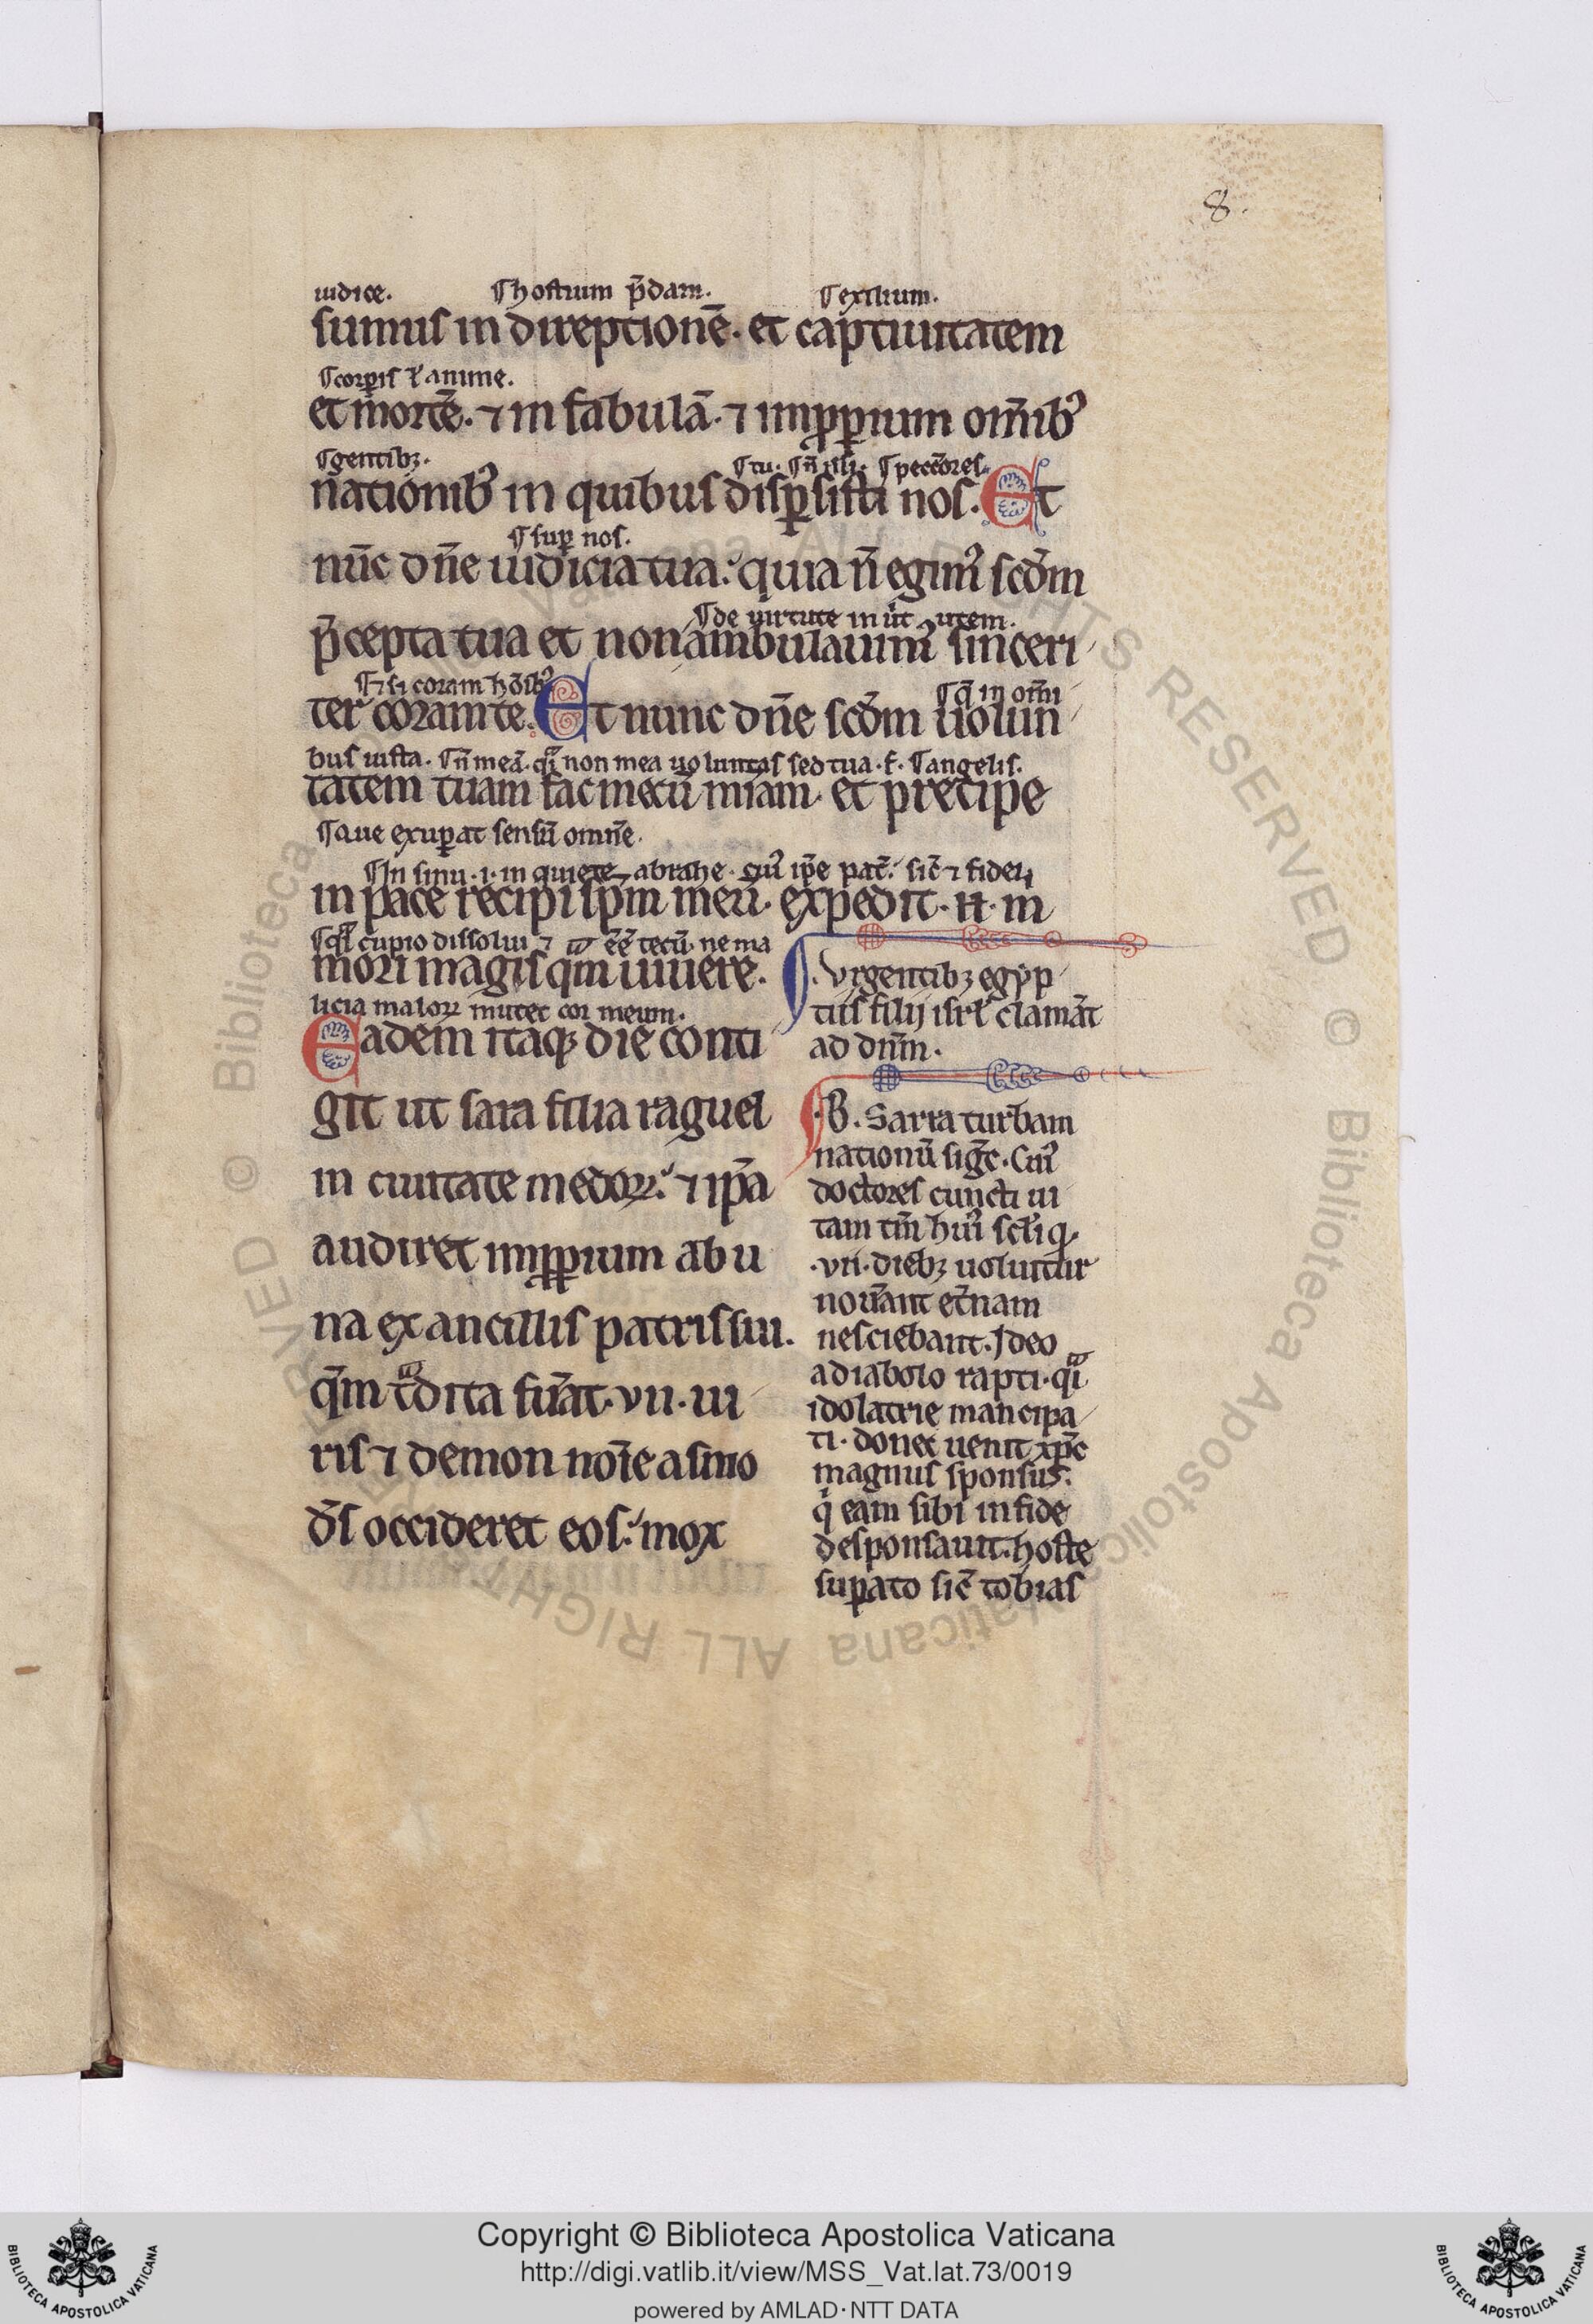 8.
iudice. ¶hostium p̄dam. ¶exilium.
sumus in direptionē. et captiuitatem
¶corꝑis ł anime.
et mortē. ⁊ in fabulā. ⁊ imꝓꝑium om̄ib⁹
¶gentibꝫ. ¶tu. ¶n̄ isti. ¶peccōres.
nationib⁹ in quibus disꝑsisti nos. Et
¶suꝑ nos.
nūc dn̄e iudicia tua. quia n̄ egim⁹ scđm
¶de uirtute in ut utem.
p̄cepta tua et non ambulauim⁹ sinceri
¶⁊ si coram hōib⁹ ¶q̄ in om̄i
ter coram te. Et nunc dn̄e scđm uolun
bus iusta. ¶n̄ meā. qͣ non mea uoluntas sed tua. f. ¶angelis.
tatem tuam fac mecū miam. et precipe
¶que exuꝑat sensū omnē.
¶In sinu .i. in quiete abrahe. cui⁹ ip̄e pat̄. sic̄ ⁊ fideli
in pace recipi sp̄m meū. expedit .n. m
¶qͣ cupio dissolui ⁊ ēē tecū. ne ma
mori magis qm̄ uiuere.
licia maloꝝ mutet cor meum.
Eadem itaqꝫ die conti
git ut sara filia raguel
in ciuitate medoꝝ. ⁊ ip̄a
audiret imꝓꝑium ab u
na ex ancillis patris sui.
qm̄ tͣdita fuāt .vii. ui
ris ⁊ demon noīe asmo
d̄s occideret eos. mox
Vrgentibꝫ egyp
tiis filij isrl̓ clamāt
ad dn̄m.
.B. Sarra turbam
nationū sigc̄. Cui⁹
doctores cuncti ui
tam tm̄ hui⁹ scl̓i q̄
.vii. diebꝫ uoluitur
nouāt et̄nam
nesciebant. Ideo
a diabolo rapti. qͣ
idolatrie mancipa
ti. donec uenit xp̄c
magnus sponsus.
qͥ eam sibi in fide
desponsauit. hoste
suꝑato sic̄ tobias
Copyright © Biblioteca Apostolica Vaticana
http://digi.vatlib.it/view/MSS_Vat.lat.73/0019
powered by AMLAD·NTT DATA
BIBLIOTECA APOSTOLICA VATICANA
BIBLIOTECA APOSTOLICA VATICANA